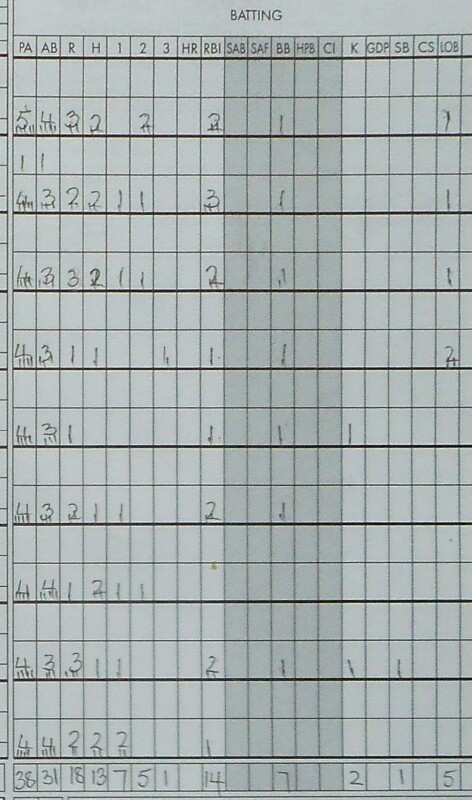 BATTING
PA AB R H 1 2 3 HR RBI SAB SAF BB HPB CI K GDP SB CS LOB
5 4 3 2 2 3 1 1
1 1
4 3 2 2 1 1 3 1 1
4 3 3 2 1 1 2 1 1
4 3 1 1 1 1 1 2
4 3 1 1 1 1
4 3 2 1 1 2 1
4 4 1 2 1 1
4 3 3 1 1 2 1 1 1
4 4 2 2 2 1
38 31 18 13 7 5 1 14 7 2 1 5